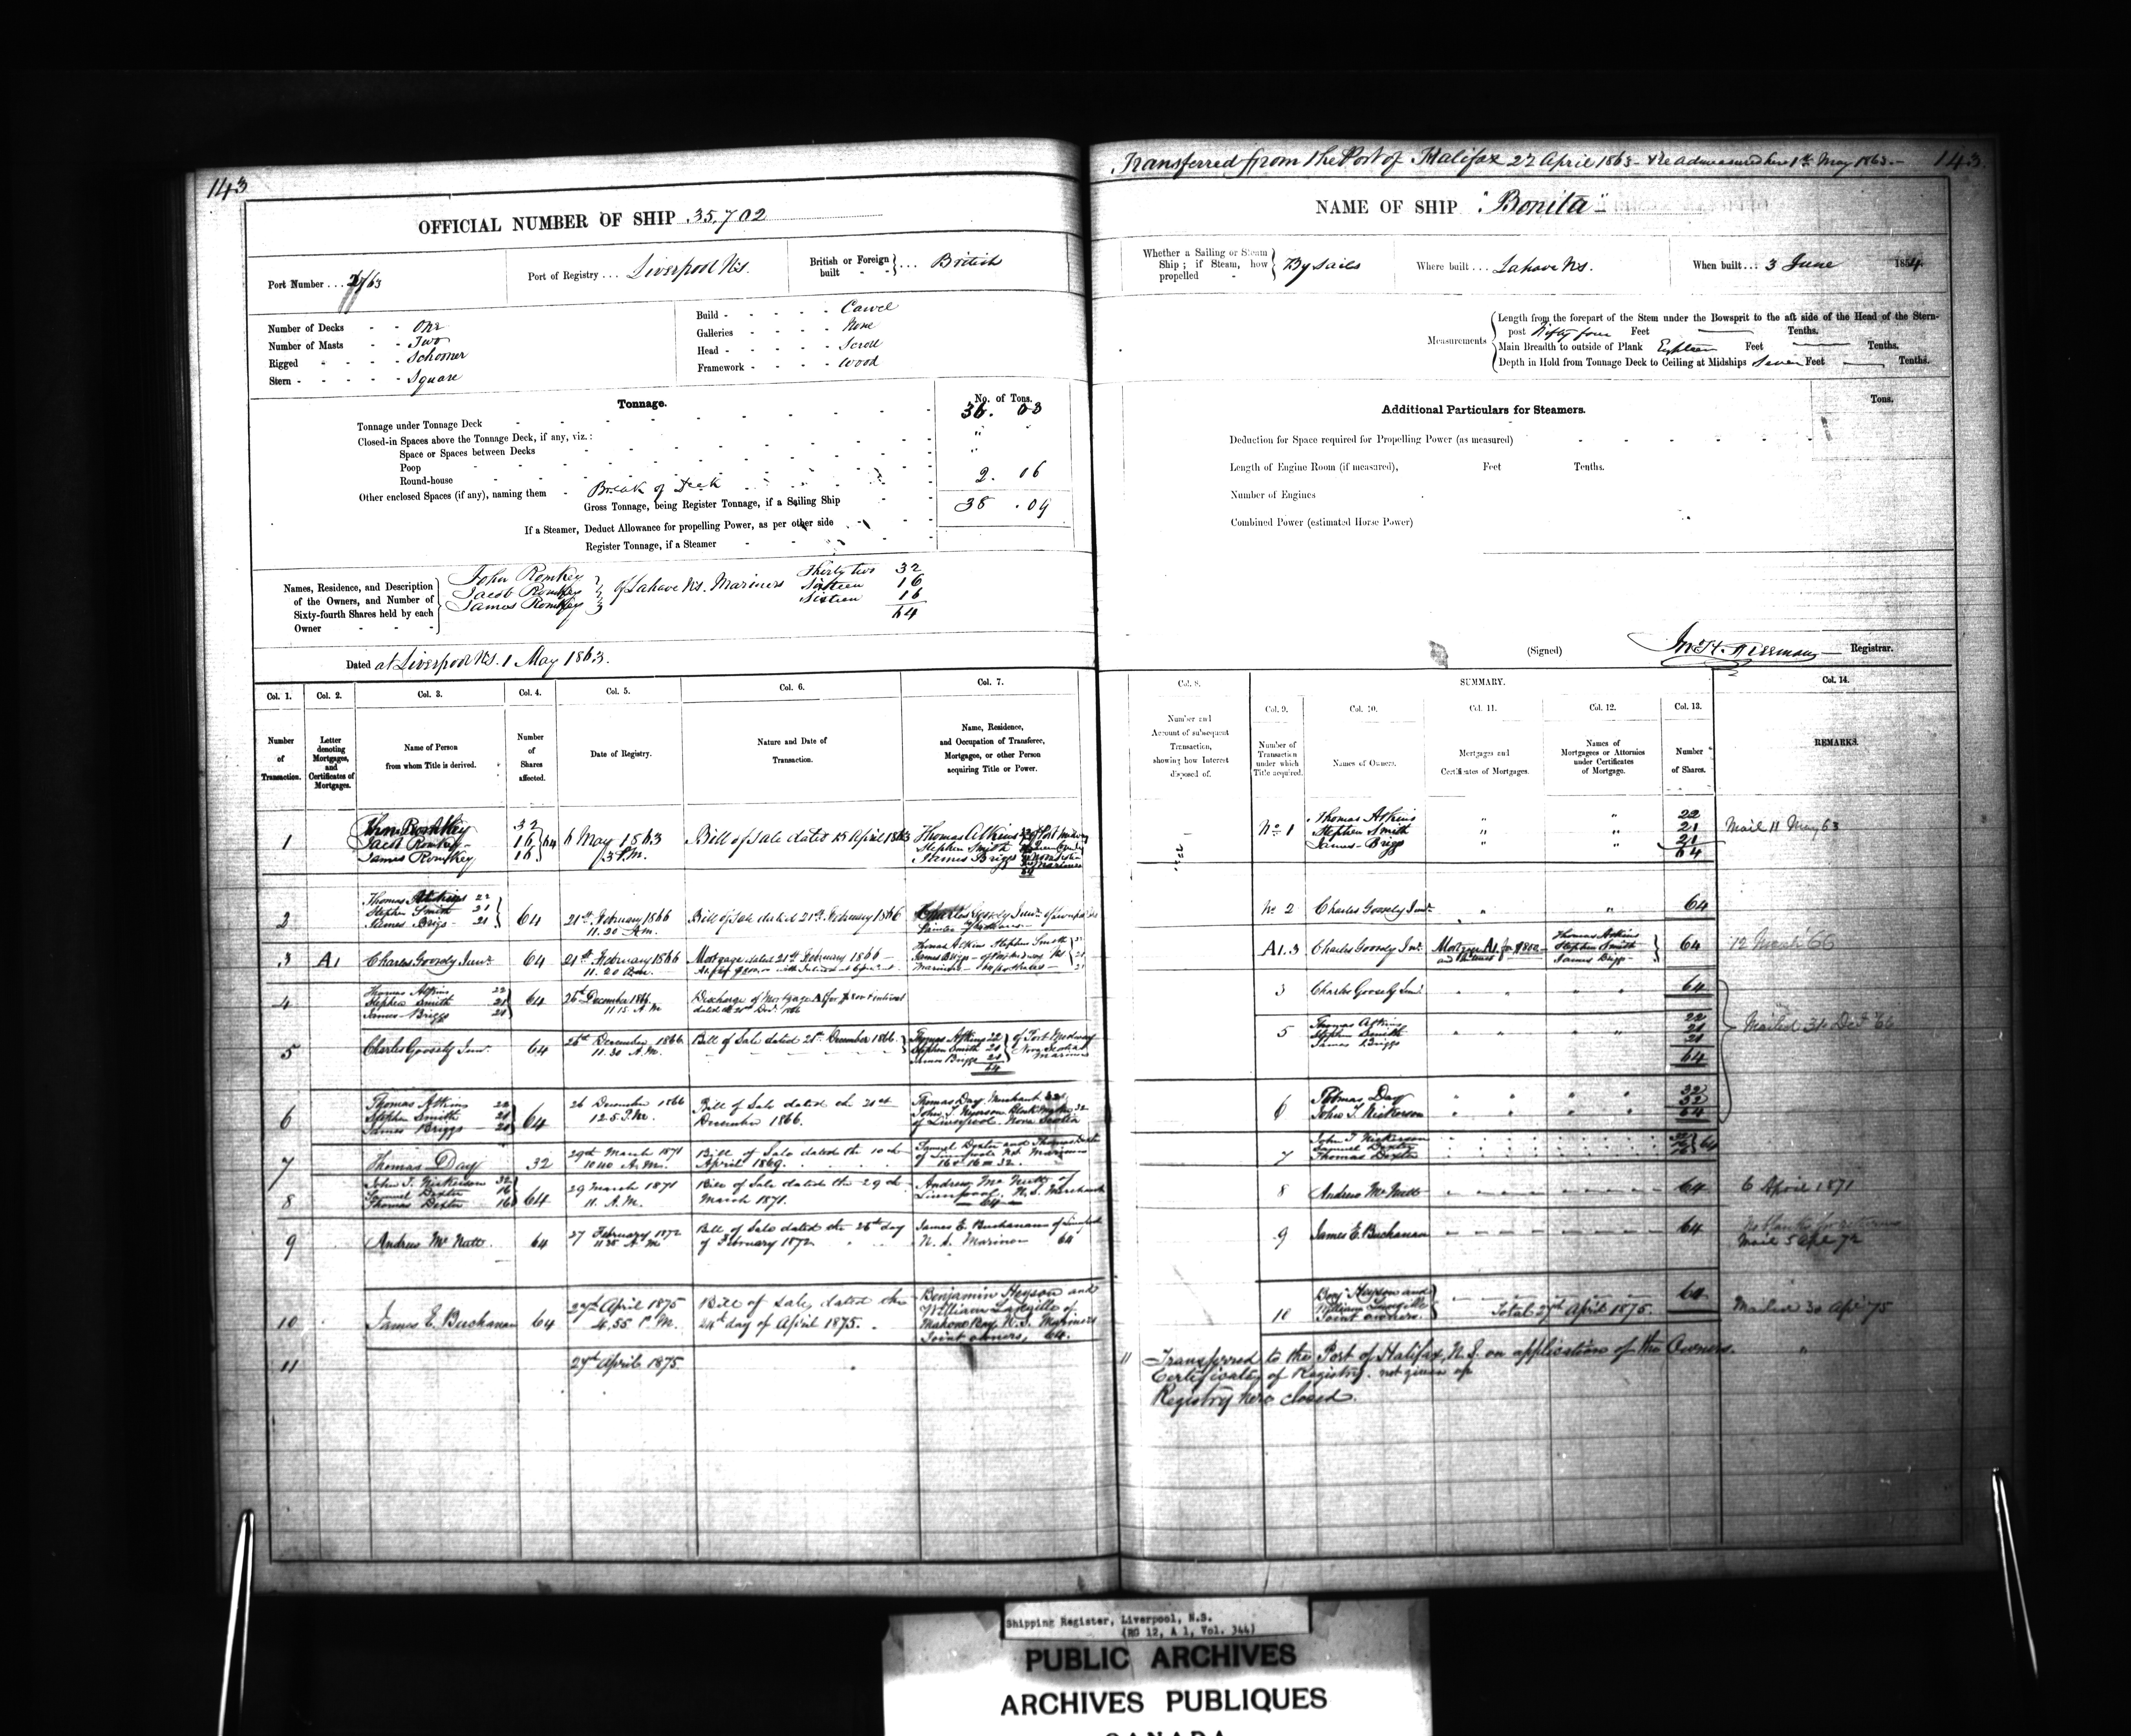 143
OFFICIAL NUMBER OF SHIP 35,702
Port Number ... /63
Port of Registry ... Liverpool N.S.
British or Foreign built - - } ... British
Number of Decks - - One
Number of Masts - - Two
Rigged - - - - Schooner
Stern - - - - - Square
Build - - - - - Carvel
Galleries - - - - None
Head - - - - - Scroll
Framework - - - - Wood
Tonnage.
No. of Tons.
Tonnage under Tonnage Deck 36. 03
Closed-in Spaces above the Tonnage Deck, if any, viz.:
Space or Spaces between Decks
Poop
Round-house
Other enclosed Spaces (if any), naming them - Break of Deck 2. 06
Gross Tonnage, being Register Tonnage, if a Sailing Ship 38 .09
If a Steamer, Deduct Allowance for propelling Power, as per other side
Register Tonnage, if a Steamer
Names, Residence, and Description of the Owners, and Number of Sixty-fourth Shares held by each Owner
John Romkey Thirty two 32
Jacob Romkey } of Lahave N.S. Mariners Sixteen 16
James Romkey Sixteen 16
64
Dated at Liverpool N.S. 1 May 1863.
Transferred from the Port of Halifax 27 April 1863 - & Readmeasured here 1st May 1863.- 143
NAME OF SHIP "Bonita"
Whether a Sailing or Steam Ship; if Steam, how propelled } By Sails
Where built ... Lahave N.S.
When built ... 3 June 1854.
Measurements
Length from the forepart of the Stem under the Bowsprit to the aft side of the Head of the Stern-
post Fifty four Feet — Tenths.
Main Breadth to outside of Plank Eighteen Feet — Tenths.
Depth in Hold from Tonnage Deck to Ceiling at Midships Seven Feet — Tenths.
Additional Particulars for Steamers.
Tons.
Deduction for Space required for Propelling Power (as measured)
Length of Engine Room (if measured), Feet Tenths.
Number of Engines
Combined Power (estimated Horse Power)
(Signed) Registrar.
Col. 1. Col. 2. Col. 3. Col. 4. Col. 5. Col. 6. Col. 7.
Number of Transaction.
Letter denoting Mortgages, and Certificates of Mortgages.
Name of Person from whom Title is derived.
Number of Shares affected.
Date of Registry.
Nature and Date of Transaction.
Name, Residence, and Occupation of Transferee, Mortgagee, or other Person acquiring Title or Power.
1 John Romkey 32
Jacob Romkey 16 } 64
James Romkey 16
6 May 1863
3 P.M.
Bill of Sale dated 15 April 1863
Thomas Atkins of Port Medway
Stephen Smith
James Briggs
2 Thomas Atkins 22
Stephen Smith 21
James Briggs 21 } 64
21st February 1866
11.20 A.M.
Bill of Sale dated 21st February 1866
Charles Goosely Junr.
3 A1 Charles Goosely Junr. 64
21st February 1866
Mortgage dated 21st February 1866
Thomas Atkins Stephen Smith
James Briggs of Port Medway
Mariners
4 Thomas Atkins 22
Stephen Smith 21
James Briggs 21 } 64
26th December 1866.
11 15 A M
Discharge of Mortgage A1
5 Charles Goosely Junr. 64
26th December 1866
11.30 A.M.
Bill of Sale dated 21st December 1866.
Thomas Atkins 22
Stephen Smith 21
James Briggs 21 } of Port Medway Nova Scotia Mariners
64
6 Thomas Atkins 22
Stephen Smith 21
James Briggs 21 } 64
26 December 1866
12.5 P.M.
Bill of Sale dated the 21st
December 1866.
Thomas Day Merchant 32
John T. Nickerson 32
of Liverpool Nova Scotia
7 Thomas Day 32
29th March 1871
10 40 A.M.
Bill of Sale dated the 10th
April 1869.
Samuel Dexter and Thomas Dexter
of Liverpool N.S. Mariners
16 & 16 = 32.
8 John T. Nickerson 32
Samuel Dexter 16
Thomas Dexter 16 } 64
29 March 1871
11. A.M.
Bill of Sale dated the 29th
March 1871.
Andrew McNutt of
Liverpool N.S. Merchant
— 64 —
9 Andrew McNutt. 64
27 February 1872
11 25 A M
Bill of Sale dated the 26th day
of February 1872
James E. Buchanan of Liverpool
N.S. Mariner 64
10 James E. Buchanan 64
27th April 1875
4.55 P.M.
Bill of Sale, dated the
24th day of April 1875.
Benjamin Heyson and
William Langille of
Mahone Bay, N.S. Mariners
Joint owners, 64.
11 27th April 1875
Col. 8. Number and Account of subsequent Transaction, showing how Interest disposed of.
SUMMARY.
Col. 9. Number of Transaction under which Title acquired.
Col. 10. Names of Owners.
Col. 11. Mortgages and Certificates of Mortgages.
Col. 12. Names of Mortgagees or Attornies under Certificates of Mortgage.
Col. 13. Number of Shares.
Col. 14. REMARKS.
No. 1 Thomas Atkins 22
Stephen Smith 21 Mail 11 May 63
James Briggs 21
64
No. 2 Charles Goosely Junr. 64
A1.3 Charles Goosely Junr. Mortgage A1 for $800 and Interest
Thomas Atkins
Stephen Smith
James Briggs } 64
3 Charles Goosely Junr. 64
5 Thomas Atkins 22
Stephen Smith 21
James Briggs 21
64
Mailed 31 Dec '66
6 Thomas Day 32
John T. Nickerson 32
64
7 John T Nickerson 32
Samuel Dexter 16
Thomas Dexter 16 } 64
8 Andrew McNutt 64 6 April 1871
9 James E. Buchanan 64
Mail 5 Apl 72
10 Benj. Heyson and
William Langille
Joint owners. } 64
Total 27th April 1875.
Mailed 30 Apl '75
11 Transferred to the Port of Halifax, N.S. on application of the Owners.
Certificate of Registry not given up
Registry here closed.
Shipping Register, Liverpool, N.S.
(RG 12, A 1, Vol. 344)
PUBLIC ARCHIVES
ARCHIVES PUBLIQUES
CANADA